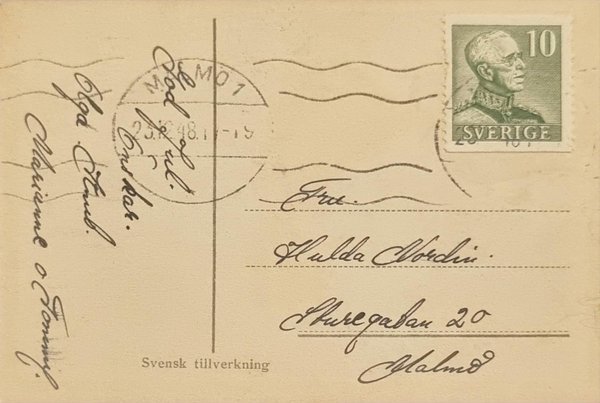 God Jul.
Önskar.
Olga Amb.
Marianne o Tommy.
MALMÖ 1
23.12.48.17-19
10
SVERIGE
Fru.
Hulda Nordin.
Sturegatan 20
Malmö
Svensk tillverkning